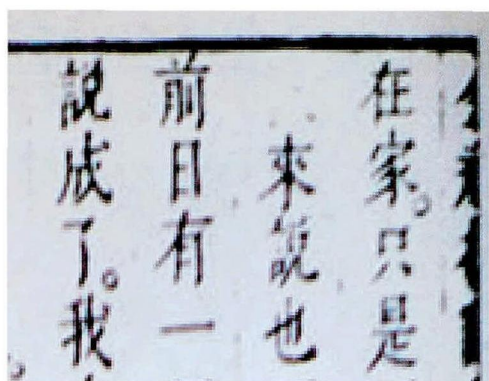 在家。只是
來説也
前日有一
説成了。我